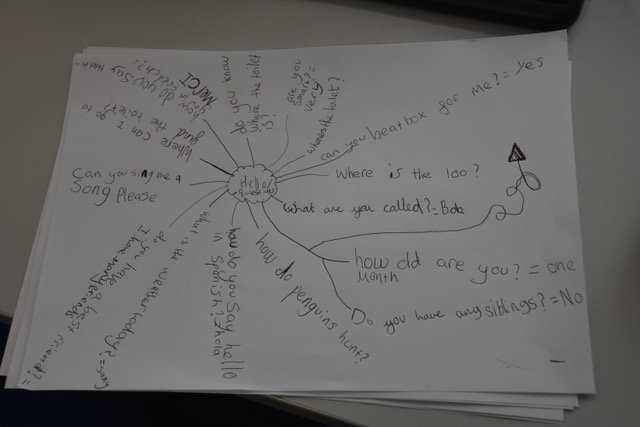 Hello
can you beatbox for me? = Yes
Where is the loo?
What are you called? = Bob
how old are you? = one
month
Do you have any sittings? = No
how do penguins hunt?
how do you say hello
in Spanish? = hola
what is the weather today? = sunny
do you have a best friend? =
I have many friends
Can you sing me a
Song Please
Where can I go to
find the toilet?
how do you say
thank-
in French? =
MERCI
do you know
where the toilet
is?
are you
smart? =
very
wheres the toilet?